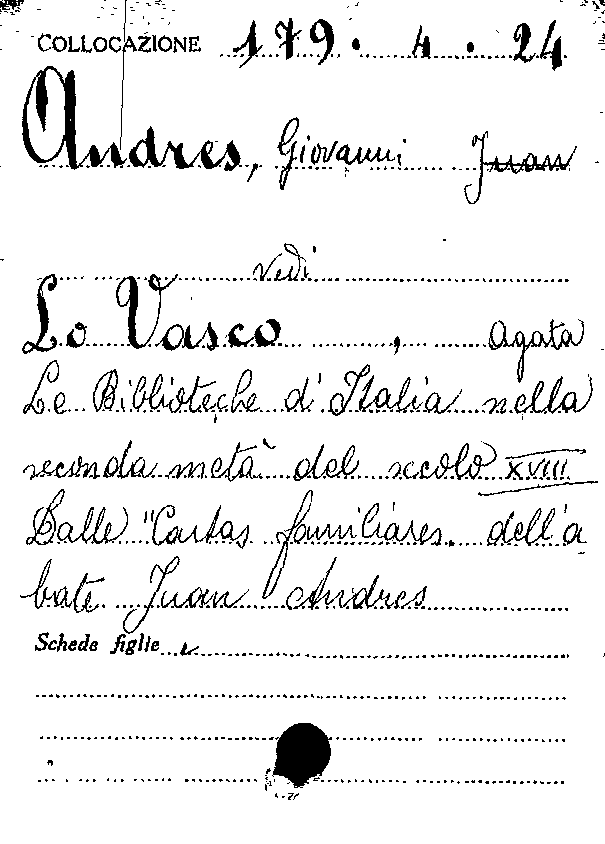 COLLOCAZIONE 179. 4. 24
Andres, Giovanni Juan
vedi
Lo Vasco, Agata
Le Biblioteche d'Italia nella
seconda metà del secolo XVIII
Dalle "Cartas familiares. dell'a
bate Juan Andres
Schede figlie